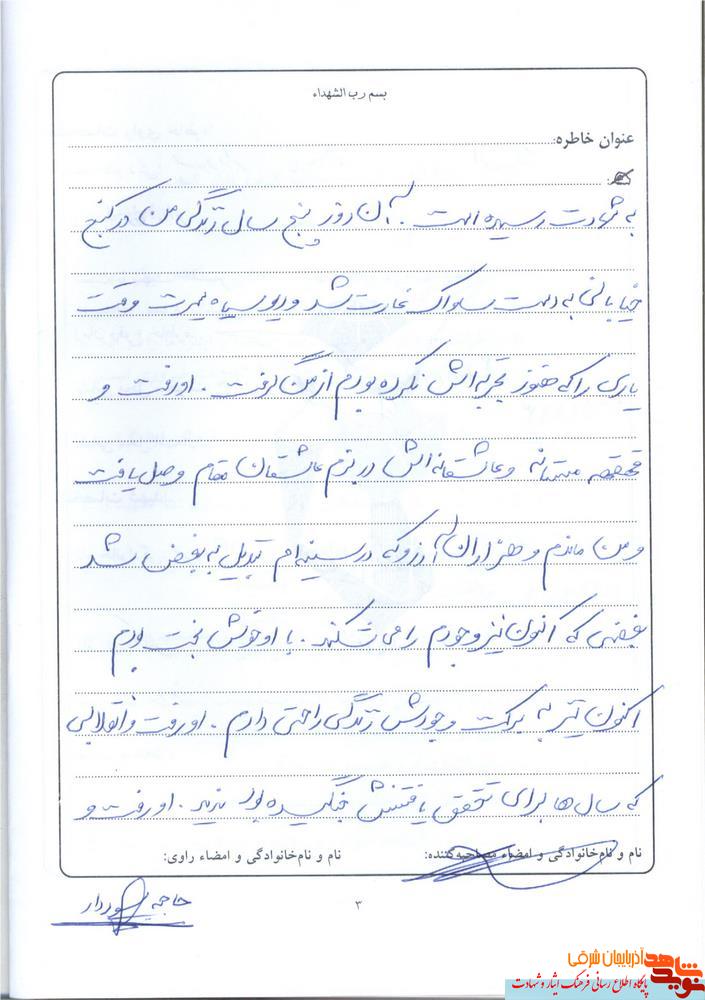 بسم رب الشهداء
عنوان خاطره:
به شهادت رسیده است. آن روز پنج سال زندگی من در کنج
خیابانی به دست ساواک غارت شد و دیو سیاه سیرت وقت
یاری را که هنوز تجربه اش نکرده بودم از من گرفت. او رفت و
قهقهه مستانه و عاشقانه اش در بزم عاشقان مقام وصل یافت
و من ماندم و هزاران آرزو که در سینه ام تبدیل به بغض شد
بغضی که اکنون نیز وجودم را می شکند. با او خوش بخت بودم
اکنون نیز به برکت وجودش زندگی راحتی دارم. او رفت و انقلابی
که سال ها برای تحقق یافتنش جنگیده بود ندید. او رفت و
نام و نام‌خانوادگی و امضاء مصاحبه‌کننده:
نام و نام‌خانوادگی و امضاء راوی:
حاجیه
۳
نوید شاهد آذربایجان شرقی
پایگاه اطلاع رسانی فرهنگ ایثار و شهادت